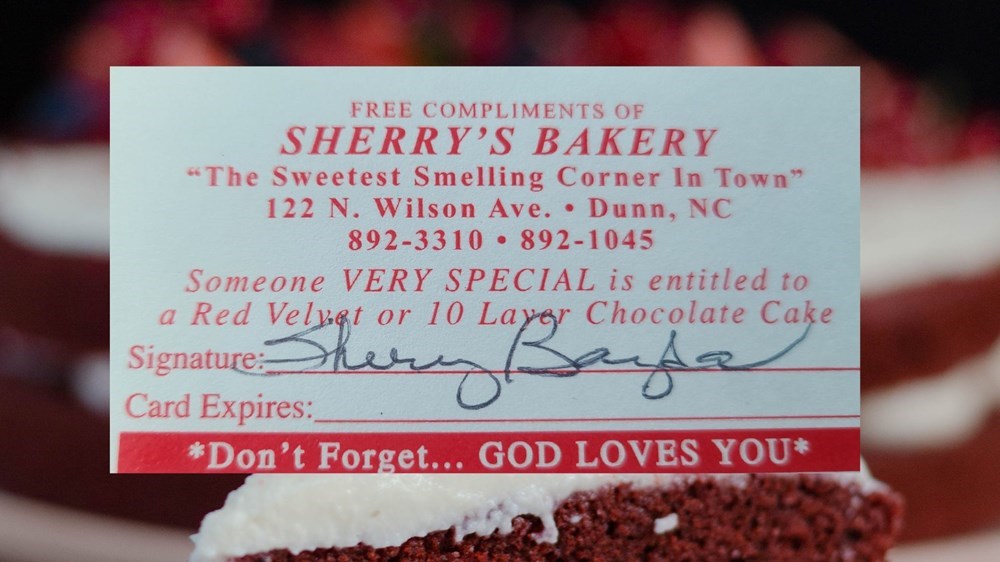 FREE COMPLIMENTS OF
SHERRY'S BAKERY
"The Sweetest Smelling Corner In Town"
122 N. Wilson Ave. • Dunn, NC
892-3310 • 892-1045
Someone VERY SPECIAL is entitled to
a Red Velvet or 10 Layer Chocolate Cake
Signature: Sherry
Card Expires:
*Don't Forget... GOD LOVES YOU*